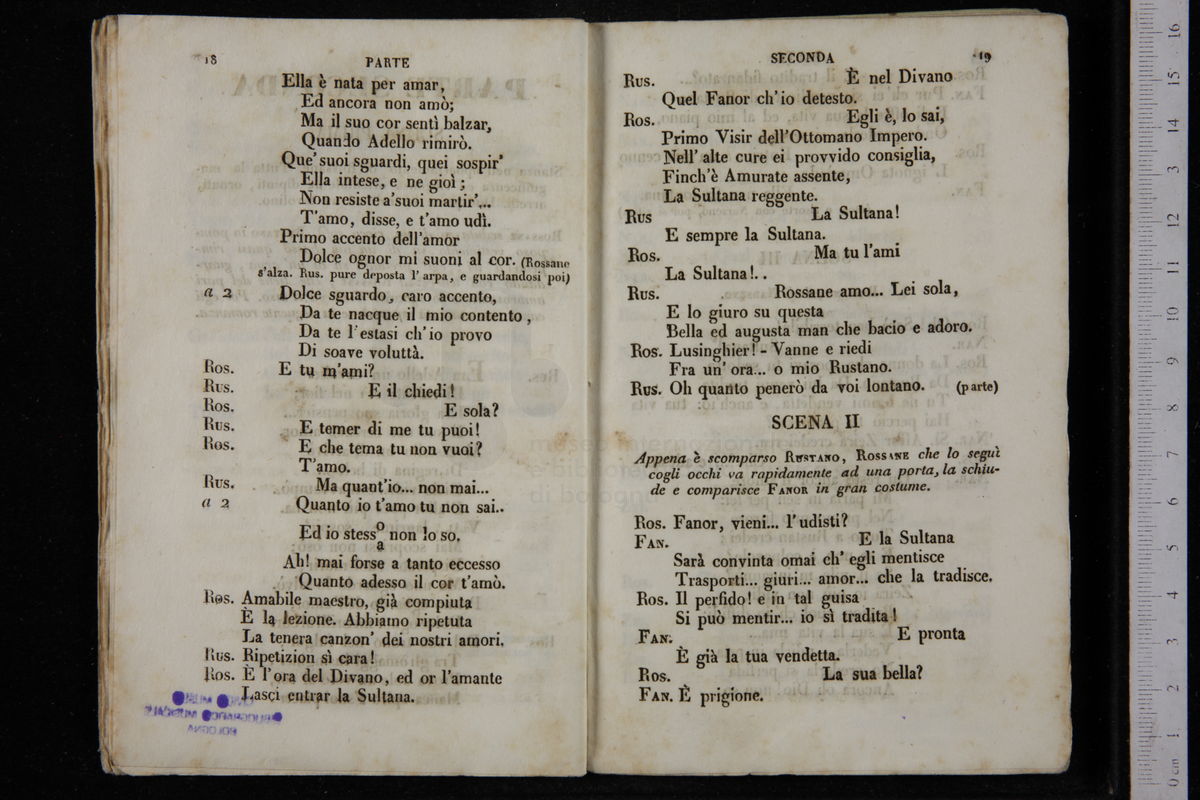 18
PARTE
Ella è nata per amar,
Ed ancora non amò;
Ma il suo cor sentì balzar,
Quando Adello rimirò.
Que' suoi sguardi, quei sospir'
Ella intese, e ne gioì;
Non resiste a'suoi martir'...
T'amo, disse, e t'amo udì.
Primo accento dell'amor
Dolce ognor mi suoni al cor. (Rossane
s'alza. Rus. pure deposta l'arpa, e guardandosi poi)
a 2 Dolce sguardo, caro accento,
Da te nacque il mio contento,
Da te l'estasi ch'io provo
Di soave voluttà.
Ros. E tu m'ami?
Rus. E il chiedi!
Ros. E sola?
Rus. E temer di me tu puoi!
Ros. E che tema tu non vuoi?
T'amo.
Rus. Ma quant'io... non mai...
a 2 Quanto io t'amo tu non sai..
Ed io stess o/a non lo so.
Ah! mai forse a tanto eccesso
Quanto adesso il cor t'amò.
Ros. Amabile maestro, già compiuta
È la lezione. Abbiamo ripetuta
La tenera canzon' dei nostri amori.
Rus. Ripetizion sì cara!
Ros. È l'ora del Divano, ed or l'amante
Lasci entrar la Sultana.
CIVICO MUSEO
BIBLIOGRAFICO MUSICALE
BOLOGNA
SECONDA
19
Rus. È nel Divano
Quel Fanor ch'io detesto.
Ros. Egli è, lo sai,
Primo Visir dell'Ottomano Impero.
Nell' alte cure ei provvido consiglia,
Finch'è Amurate assente,
La Sultana reggente.
Rus La Sultana!
E sempre la Sultana.
Ros. Ma tu l'ami
La Sultana!..
Rus. Rossane amo... Lei sola,
E lo giuro su questa
Bella ed augusta man che bacio e adoro.
Ros. Lusinghier! - Vanne e riedi
Fra un' ora... o mio Rustano.
Rus. Oh quanto penerò da voi lontano. (parte)
SCENA II
Appena è scomparso Rustano, Rossane che lo seguì
cogli occhi va rapidamente ad una porta, la schiu-
de e comparisce Fanor in gran costume.
Ros. Fanor, vieni... l'udisti?
Fan. E la Sultana
Sarà convinta omai ch' egli mentisce
Trasporti... giuri... amor... che la tradisce.
Ros. Il perfido! e in tal guisa
Si può mentir... io sì tradita!
Fan. E pronta
È già la tua vendetta.
Ros. La sua bella?
Fan. È prigione.